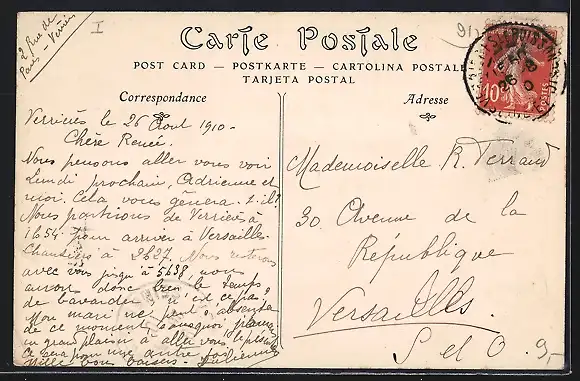 2 Rue de
Paris - Verrières
I
91
Carte Postale
POST CARD — POSTKARTE — CARTOLINA POSTALE
TARJETA POSTAL
Correspondance
Adresse
10c
POSTES
Verrières le 26 Aout 1910 -
Chère Renée.
Nous pensons aller vous voir
Lundi prochain, Adrienne et
moi. Cela vous gênera-t-il?
Nous partirions de Verrières à
1h54 pour arriver à Versailles
Chantiers à 2h27. Nous resterons
avec vous jusqu'à 5h38, nous
aurons donc bien le temps
de bavarder n'est ce pas?
Mon mari est absent
de ce moment
un grand plaisir à aller vous
ce sera pour une autre fois
Mille bons baisers -
Mademoiselle R. Terraud
30 Avenue de la
République
Versailles.
S et O. 9,-